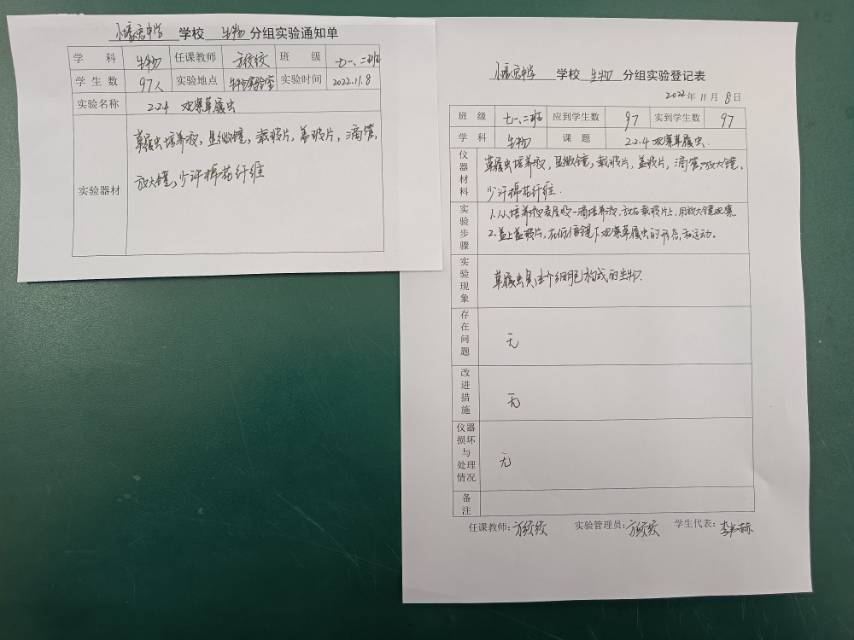 学校 生物 分组实验通知单
学 科 生物 任课教师 班 级 七一、二班
学 生 数 97人 实验地点 生物实验室 实验时间 2022.11.8
实验名称 2.2.4 观察草履虫
实验器材 草履虫培养液,显微镜,载玻片,盖玻片,滴管,
放大镜,少许棉花纤维
学校 生物 分组实验登记表
2022 年 11 月 8 日
班 级 七一、二班 应到学生数 97 实到学生数 97
学 科 生物 课 题 2.2.4观察草履虫.
仪器材料 草履虫培养液,显微镜,载玻片,盖玻片,滴管,放大镜、
少许棉花纤维.
实验步骤 1.从培养液表层吸一滴培养液,放在载玻片上,用放大镜观察.
2.盖上盖玻片,在低倍镜下观察草履虫的形态和运动。
实验现象 草履虫是由个细胞构成的生物.
存在问题 无
改进措施 无
仪器损坏与处理情况 无
备注
任课教师: 实验管理员: 学生代表: